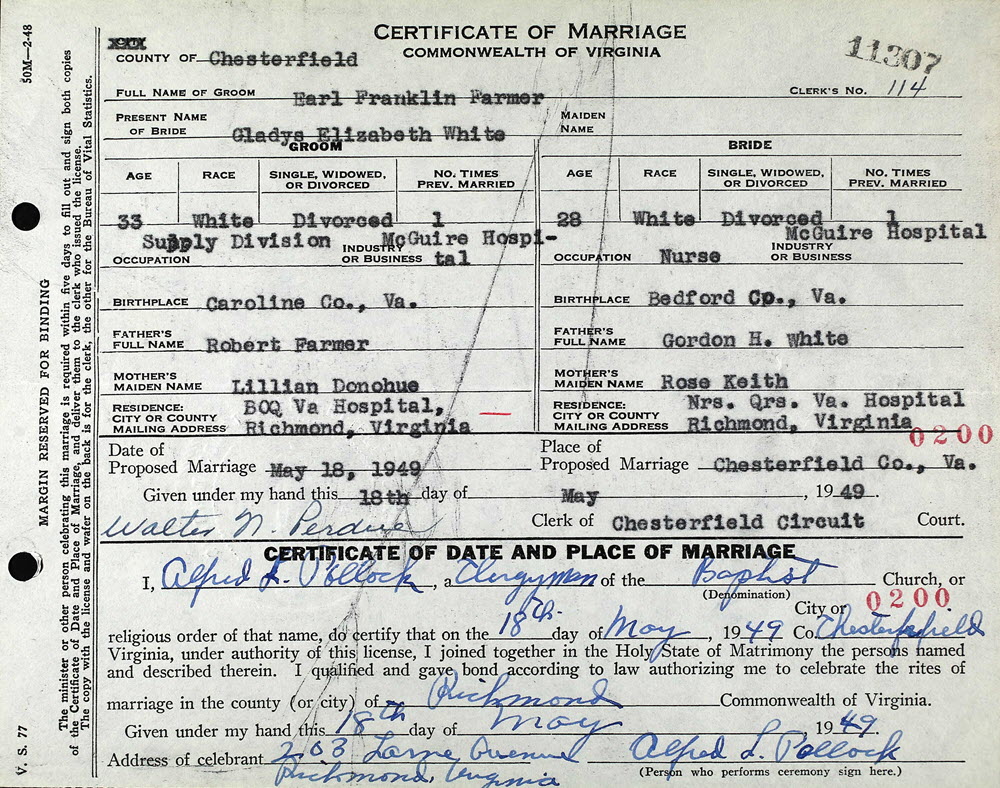 CERTIFICATE OF MARRIAGE
COMMONWEALTH OF VIRGINIA
11307
COUNTY OF Chesterfield
FULL NAME OF GROOM Earl Franklin Farmer CLERK'S NO. 114
PRESENT NAME OF BRIDE Gladys Elizabeth White MAIDEN NAME
GROOM BRIDE
AGE RACE SINGLE, WIDOWED, OR DIVORCED NO. TIMES PREV. MARRIED AGE RACE SINGLE, WIDOWED, OR DIVORCED NO. TIMES PREV. MARRIED
33 White Divorced 1 28 White Divorced 1
OCCUPATION Supply Division INDUSTRY OR BUSINESS McGuire Hospi-tal OCCUPATION Nurse INDUSTRY OR BUSINESS McGuire Hospital
BIRTHPLACE Caroline Co., Va. BIRTHPLACE Bedford Co., Va.
FATHER'S FULL NAME Robert Farmer FATHER'S FULL NAME Gordon H. White
MOTHER'S MAIDEN NAME Lillian Donohue MOTHER'S MAIDEN NAME Rose Keith
RESIDENCE: BOQ Va Hospital, RESIDENCE: Nrs. Qrs. Va. Hospital
CITY OR COUNTY MAILING ADDRESS Richmond, Virginia CITY OR COUNTY MAILING ADDRESS Richmond, Virginia
0200
Date of Proposed Marriage May 18, 1949 Place of Proposed Marriage Chesterfield Co., Va.
Given under my hand this 18th day of May, 1949.
Walter N. Perdue Clerk of Chesterfield Circuit Court.
CERTIFICATE OF DATE AND PLACE OF MARRIAGE
I, Alfred L. Pollock, a Clergyman of the Baptist Church, or
(Denomination)
City or 0200
religious order of that name, do certify that on the 18th day of May, 1949 Co. Chesterfield
Virginia, under authority of this license, I joined together in the Holy State of Matrimony the persons named
and described therein. I qualified and gave bond according to law authorizing me to celebrate the rites of
marriage in the county (or city) of Richmond Commonwealth of Virginia.
Given under my hand this 18th day of May, 1949.
Address of celebrant 203 Lorne Avenue Alfred L. Pollock
Richmond, Virginia (Person who performs ceremony sign here.)
50M—2-48
MARGIN RESERVED FOR BINDING
V. S. 77
The minister or other person celebrating this marriage is required within five days to fill out and sign both copies
of the Certificate of Date and Place of Marriage, and deliver them to the clerk who issued the license.
The copy with license and wafer on the back is for the clerk, the other for the Bureau of Vital Statistics.